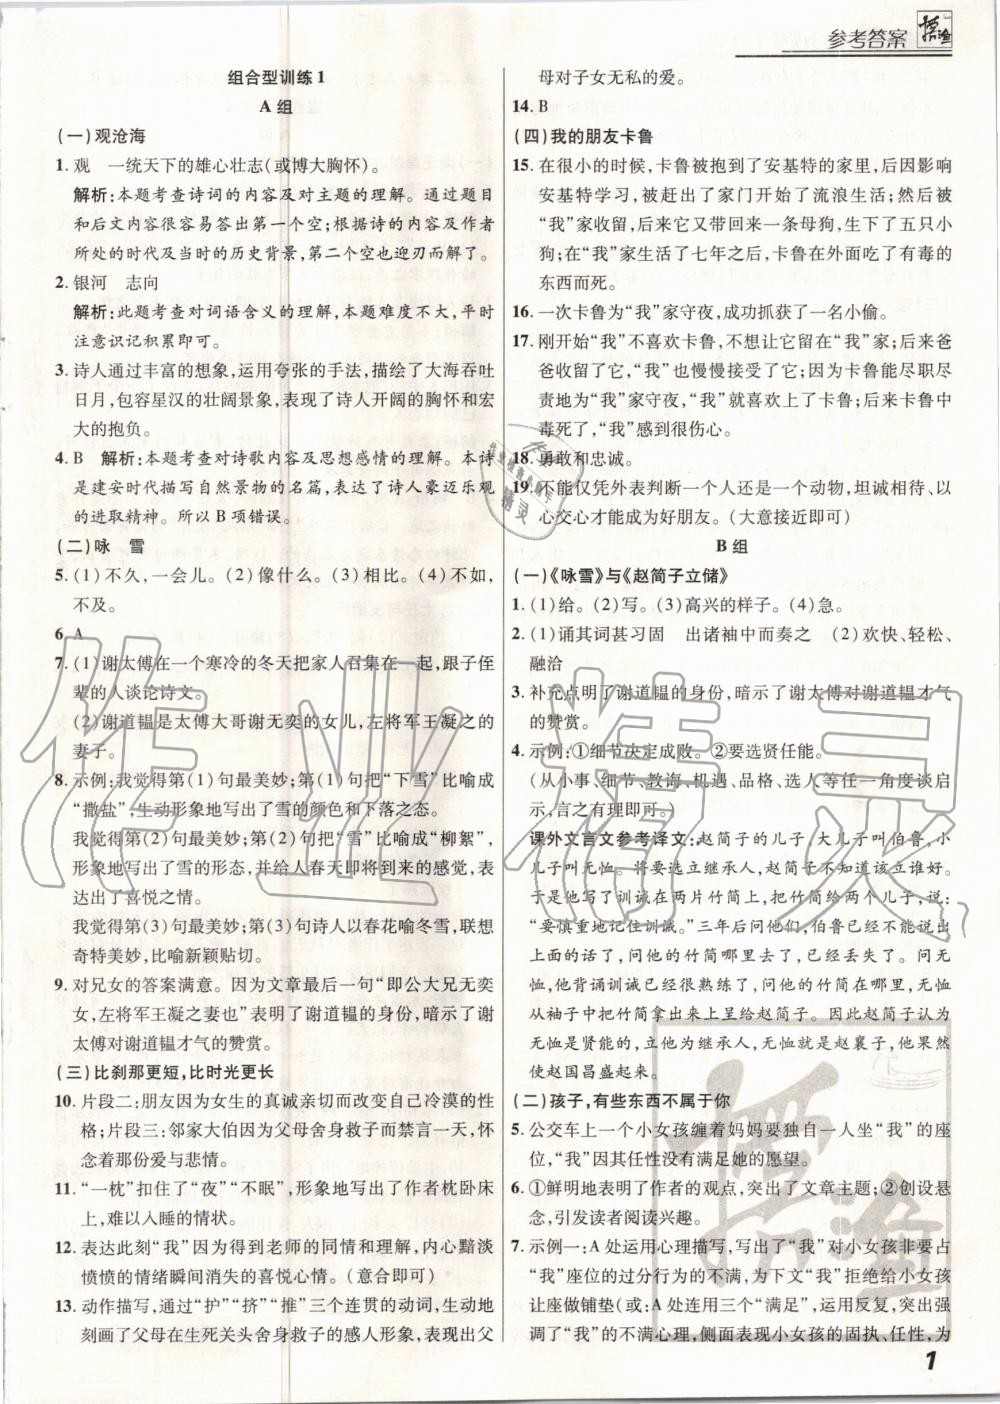 参考答案
组合型训练1
A 组
(一)观沧海
1. 观　一统天下的雄心壮志(或博大胸怀)。
解析:本题考查诗词的内容及对主题的理解。通过题目
和后文内容很容易答出第一个空;根据诗的内容及作者
所处的时代及当时的历史背景,第二个空也迎刃而解了。
2. 银河　志向
解析:此题考查对词语含义的理解,本题难度不大,平时
注意识记积累即可。
3. 诗人通过丰富的想象,运用夸张的手法,描绘了大海吞吐
日月,包容星汉的壮阔景象,表现了诗人开阔的胸怀和宏
大的抱负。
4. B　解析:本题考查对诗歌内容及思想感情的理解。本诗
是建安时代描写自然景物的名篇,表达了诗人豪迈乐观
的进取精神。所以 B 项错误。
(二)咏　雪
5. (1)不久,一会儿。(2)像什么。(3)相比。(4)不如,
不及。
6. A
7. (1)谢太傅在一个寒冷的冬天把家人召集在一起,跟子侄
辈的人谈论诗文。
(2)谢道韫是太傅大哥谢无奕的女儿,左将军王凝之的
妻子。
8. 示例:我觉得第(1)句最美妙;第(1)句把“下雪”比喻成
“撒盐”,生动形象地写出了雪的颜色和下落之态。
我觉得第(2)句最美妙;第(2)句把“雪”比喻成“柳絮”,
形象地写出了雪的形态,并给人春天即将到来的感觉,表
达出了喜悦之情。
我觉得第(3)句最美妙;第(3)句诗人以春花喻冬雪,联想
奇特美妙,比喻新颖贴切。
9. 对兄女的答案满意。因为文章最后一句“即公大兄无奕
女,左将军王凝之妻也”表明了谢道韫的身份,暗示了谢
太傅对谢道韫才气的赞赏。
(三)比刹那更短,比时光更长
10. 片段二:朋友因为女生的真诚亲切而改变自己冷漠的性
格;片段三:邻家大伯因为父母舍身救子而禁言一天,怀
念着那份爱与悲情。
11. “一枕”扣住了“夜”“不眠”,形象地写出了作者枕卧床
上,难以入睡的情状。
12. 表达此刻“我”因受到老师的同情和理解,内心黯淡
愤愤的情绪瞬间消失的喜悦心情。(意合即可)
13. 动作描写,通过“护”“挤”“推”三个连贯的动词,生动地
刻画了父母在生死关头舍身救子的感人形象,表现出父
母对子女无私的爱。
14. B
(四)我的朋友卡鲁
15. 在很小的时候,卡鲁被抱到了安基特的家里,后因影响
安基特学习,被赶出了家门开始了流浪生活;然后被
“我”家收留,后来它又带回来一条母狗,生下了五只小
狗;在“我”家生活了七年之后,卡鲁在外面吃了有毒的
东西而死。
16. 一次卡鲁为“我”家守夜,成功抓获了一名小偷。
17. 刚开始“我”不喜欢卡鲁,不想让它留在“我”家;后来爸
爸收留了它,“我”也慢慢接受了它;后来卡鲁能尽职尽
责地为“我”家守夜,“我”就喜欢上了卡鲁;后来卡鲁中
毒死了,“我”感到很伤心。
18. 勇敢和忠诚。
19. 不能仅凭外表判断一个人还是一个动物,坦诚相待、以
心交心才能成为好朋友。(大意接近即可)
B 组
(一)《咏雪》与《赵简子立储》
1. (1)给。(2)写。(3)高兴的样子。(4)急。
2. (1)诵其词甚习固　出诸袖中而奏之　(2)欢快、轻松、
融洽
3. 补充点明了谢道韫的身份,暗示了谢太傅对谢道韫才气
的赞赏。
4. 示例:①细节决定成败。②要选贤任能。
(从小事、细节、教诲、机遇、品格、选人等任一角度谈启
示,言之有理即可。)
课外文言文参考译文:赵简子的儿子,大儿子叫伯鲁,小
儿子叫无恤。将要选立继承人,赵简子不知道该立谁好。
于是他写了训诫在两片竹简上,把竹简给两个儿子,说:
“要慎重地记住训诫。”三年后问他们,伯鲁已经说不出
上面的话了,问他的竹简哪里去了,已经丢失了。问无
恤,他背诵训诫已经很熟练了,问他竹简哪里去了,无恤
从袖子中把竹简拿出来上呈给赵简子。因此赵简子认为
无恤是贤能的,立他为继承人,无恤就是赵襄子,他果然
使赵国昌盛起来。
(二)孩子,有些东西不属于你
5. 公交车上一个小女孩缠着妈妈要独自一人坐“我”的座
位,“我”因其任性没有满足她的愿望。
6. ①鲜明地表明了作者的观点,突出了文章主题;②创设悬
念,引发读者阅读兴趣。
7. 示例一:A 处运用心理描写,写出了“我”对小女孩非要占
“我”座位的过分行为的不满,为下文“我”拒绝给小女孩
让座做铺垫(或:A 处连用三个“满足”,运用反复,突出强
调了“我”的不满心理,侧面表现小女孩的固执、任性,为
1
作业精灵